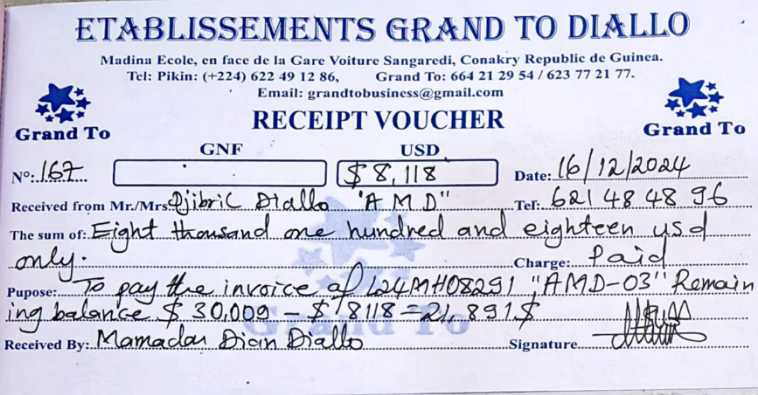 ETABLISSEMENTS GRAND TO DIALLO
Madina Ecole, en face de la Gare Voiture Sangaredi, Conakry Republic de Guinea.
Tel: Pikin: (+224) 622 49 12 86, Grand To: 664 21 29 54 / 623 77 21 77.
Email: grandtobusiness@gmail.com
Grand To RECEIPT VOUCHER Grand To
GNF USD
N°: 167 $ 8,118 Date: 16/12/2024
Received from Mr./Mrs Djibril Diallo "AMD" Tel: 621 48 48 96
The sum of: Eight thousand one hundred and eighteen usd
only. Charge: Paid
Pupose: To pay the invoice of L24MH08291 "AMD-03" Remain
ing balance $ 30,009 - $ 8118 = 21,891 $
Grand To
Received By: Mamadou Dian Diallo Signature